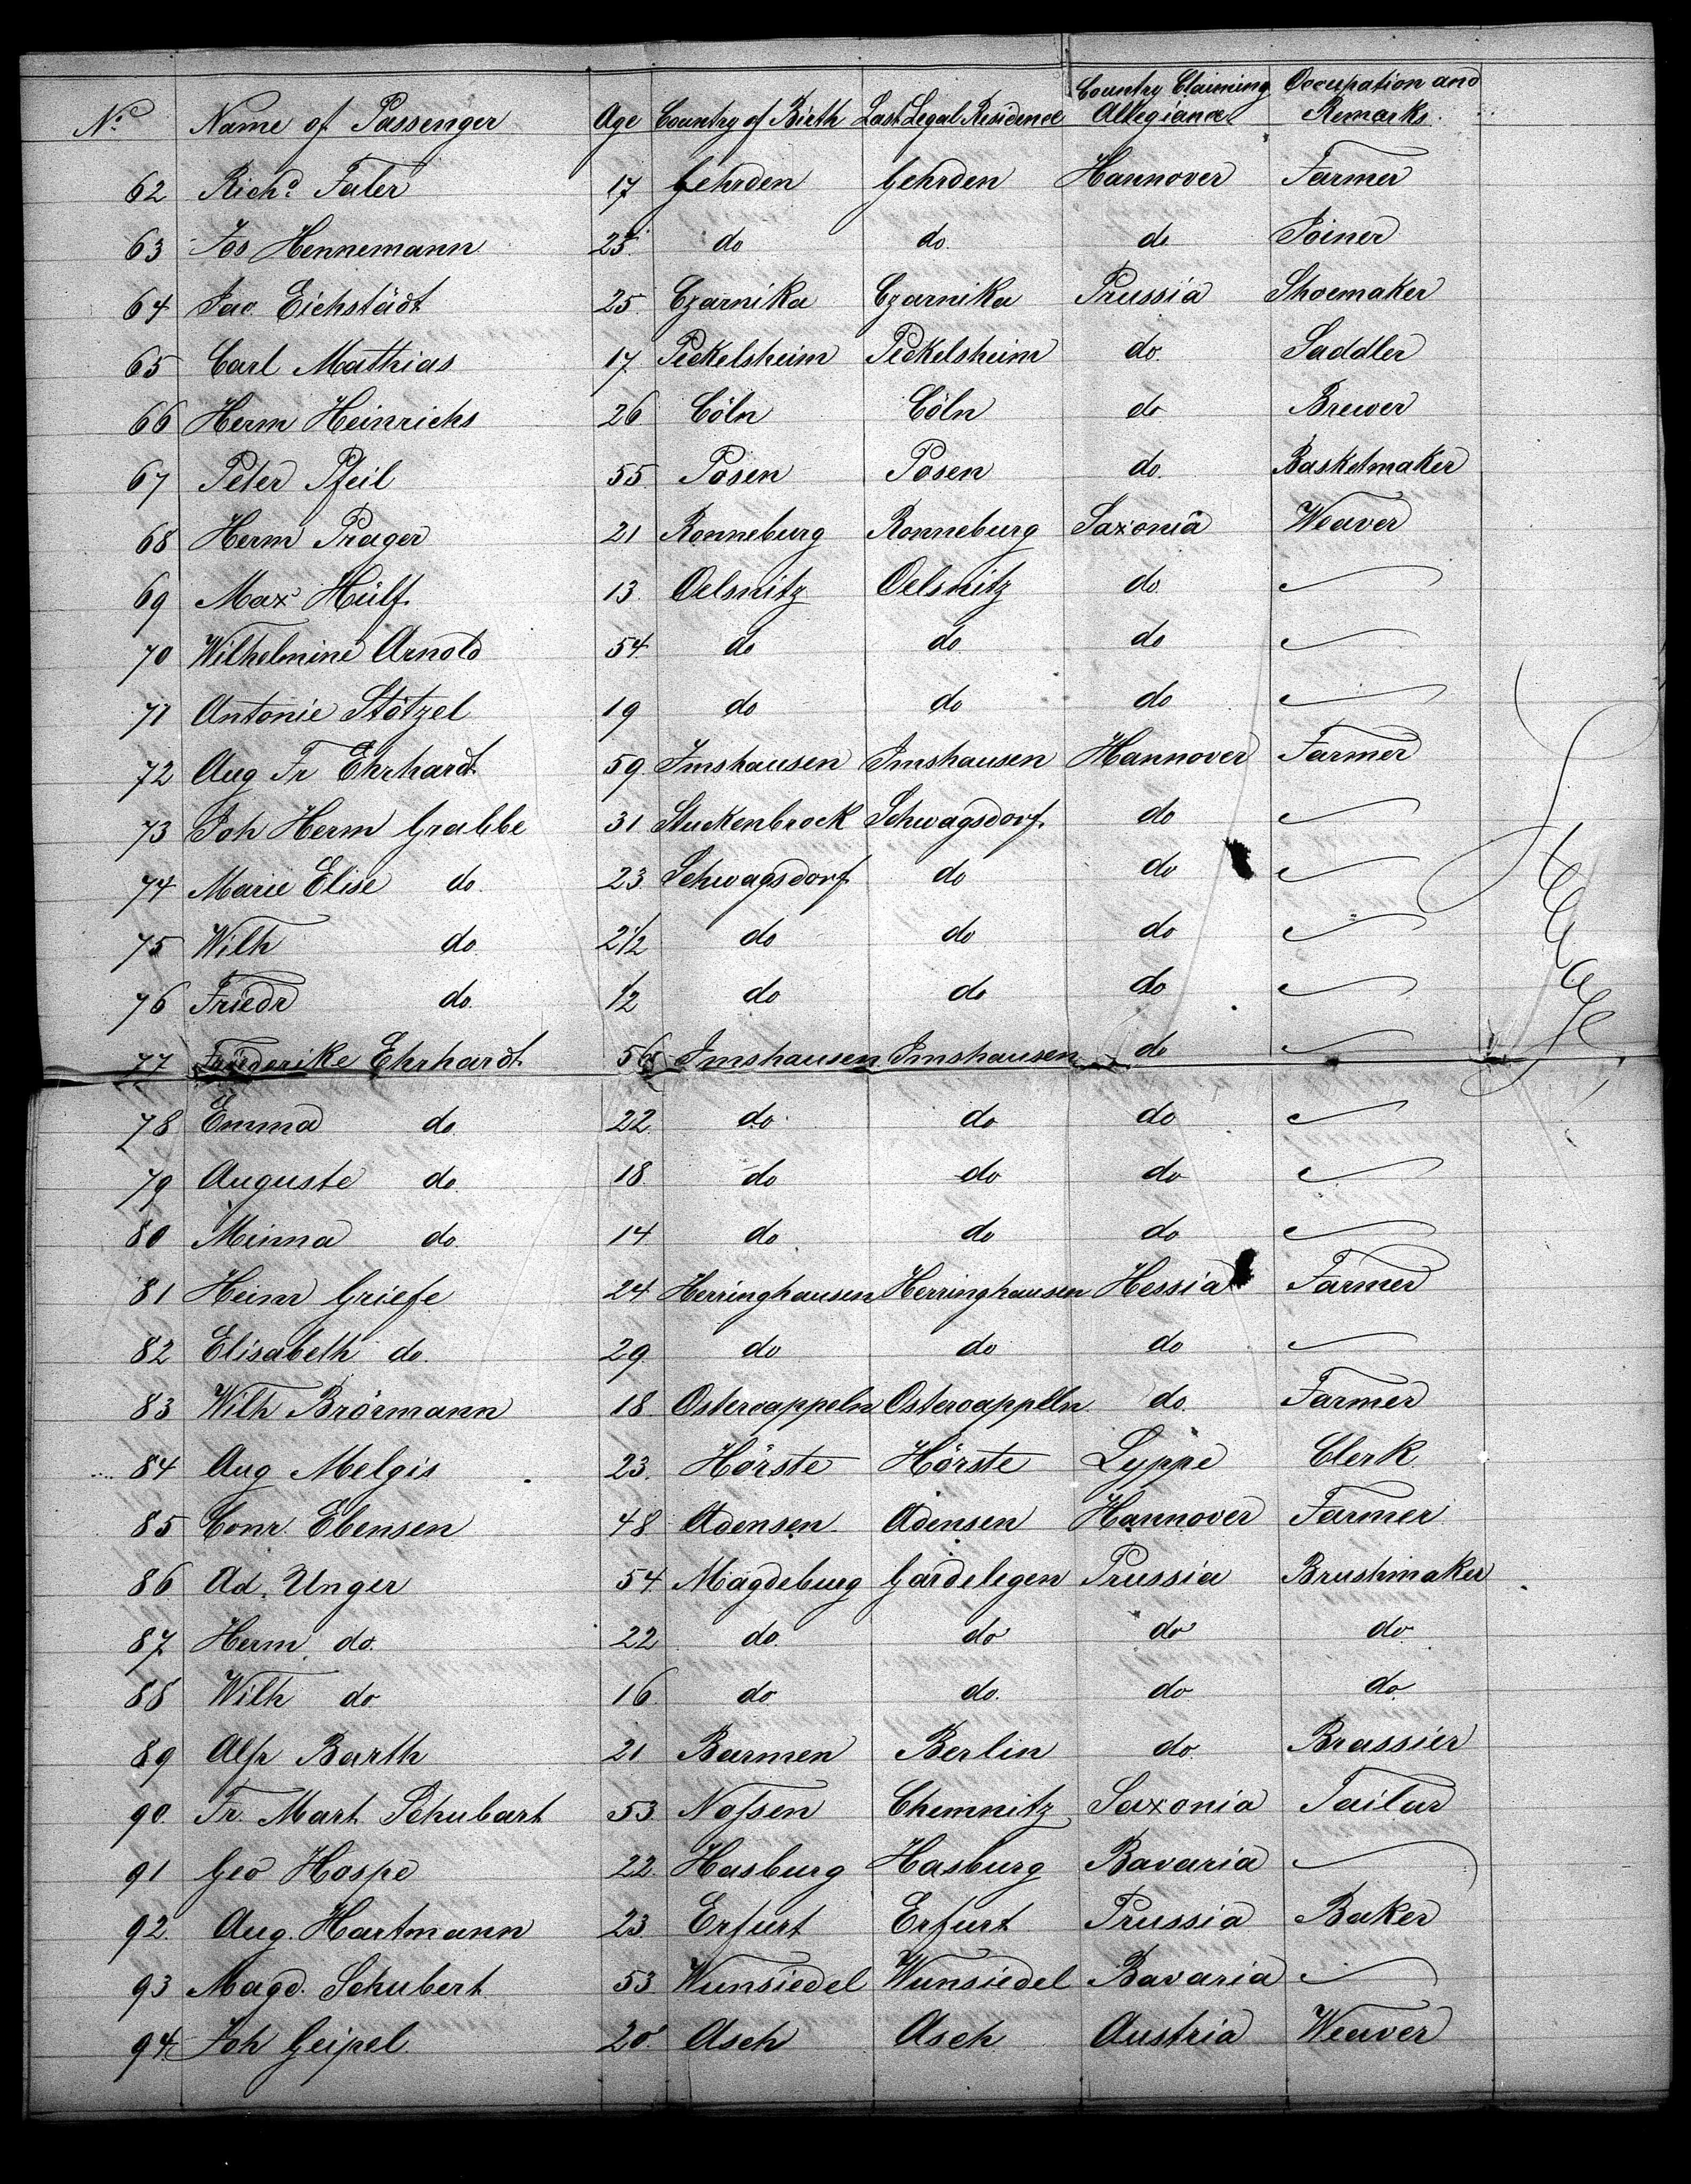 No. Name of Passenger Age Country of Birth Last Legal Residence Country Claiming Allegiance Occupation and Remarks.
62 Richd. Faler 17 Gehrden Gehrden Hannover Farmer
63 Jos Hennemann 25 do do do Joiner
64 Jac. Eichstädt 25 Czarnika Czarnika Prussia Shoemaker
65 Carl Mathias 17 Peckelsheim Peckelsheim do Saddler
66 Herm Heinrichs 26 Cöln Cöln do Brewer
67 Peter Pfeil 55 Posen Posen do. Basketmaker
68 Herm Prager 21 Ronneburg Ronneburg Saxonia Weaver
69 Max Hülf 13 Oelsnitz Oelsnitz do.
70 Wilhelmine Arnold 54 do do do
71 Antonie Stötzel 19 do do do
72 Aug Fr Ehrhardt 59 Imshausen Imshausen Hannover Farmer
73 Joh Herm Grabbe 31 Stuckenbrock Schwagsdorf do
74 Marie Elise do. 23 Schwagsdorf do do
75 Wilh do. 2 1/2 do do do
76 Friedr do. 1/2 do do do
77 Friederike Ehrhardt 56 Imshausen Imshausen do
78 Emma do 22 do do do
79 Auguste do. 18 do do do
80 Minna do. 14 do do do
81 Heinr Griefe 24 Herringhausen Herringhausen Hessia Farmer
82 Elisabeth do. 29 do do do
83 Wilh Brörmann 18 Ostercappeln Ostercappeln do. Farmer
84 Aug Melgis 23. Hörste Hörste Lyppe Clerk
85 Conr. Ebensen 48 Adensen Adensen Hannover Farmer
86 Ad. Unger 54 Magdeburg Gardelegen Prussia Brushmaker
87 Herm do. 22 do. do do do
88 Wilh do 16 do do. do do
89 Alfr Barth 21 Barmen Berlin do. Brassier
90. Fr. Mart. Schubart 53 Nossen Chemnitz Saxonia Tailar
91 Geo Hospe 22. Hasburg Hasburg Bavaria
92. Aug. Hartmann 23 Erfurt Erfurt Prussia Baker
93 Magd. Schubert 53 Wunsiedel Wunsiedel Bavaria
94. Joh Geipel 20 Asch Asch Austria Weaver